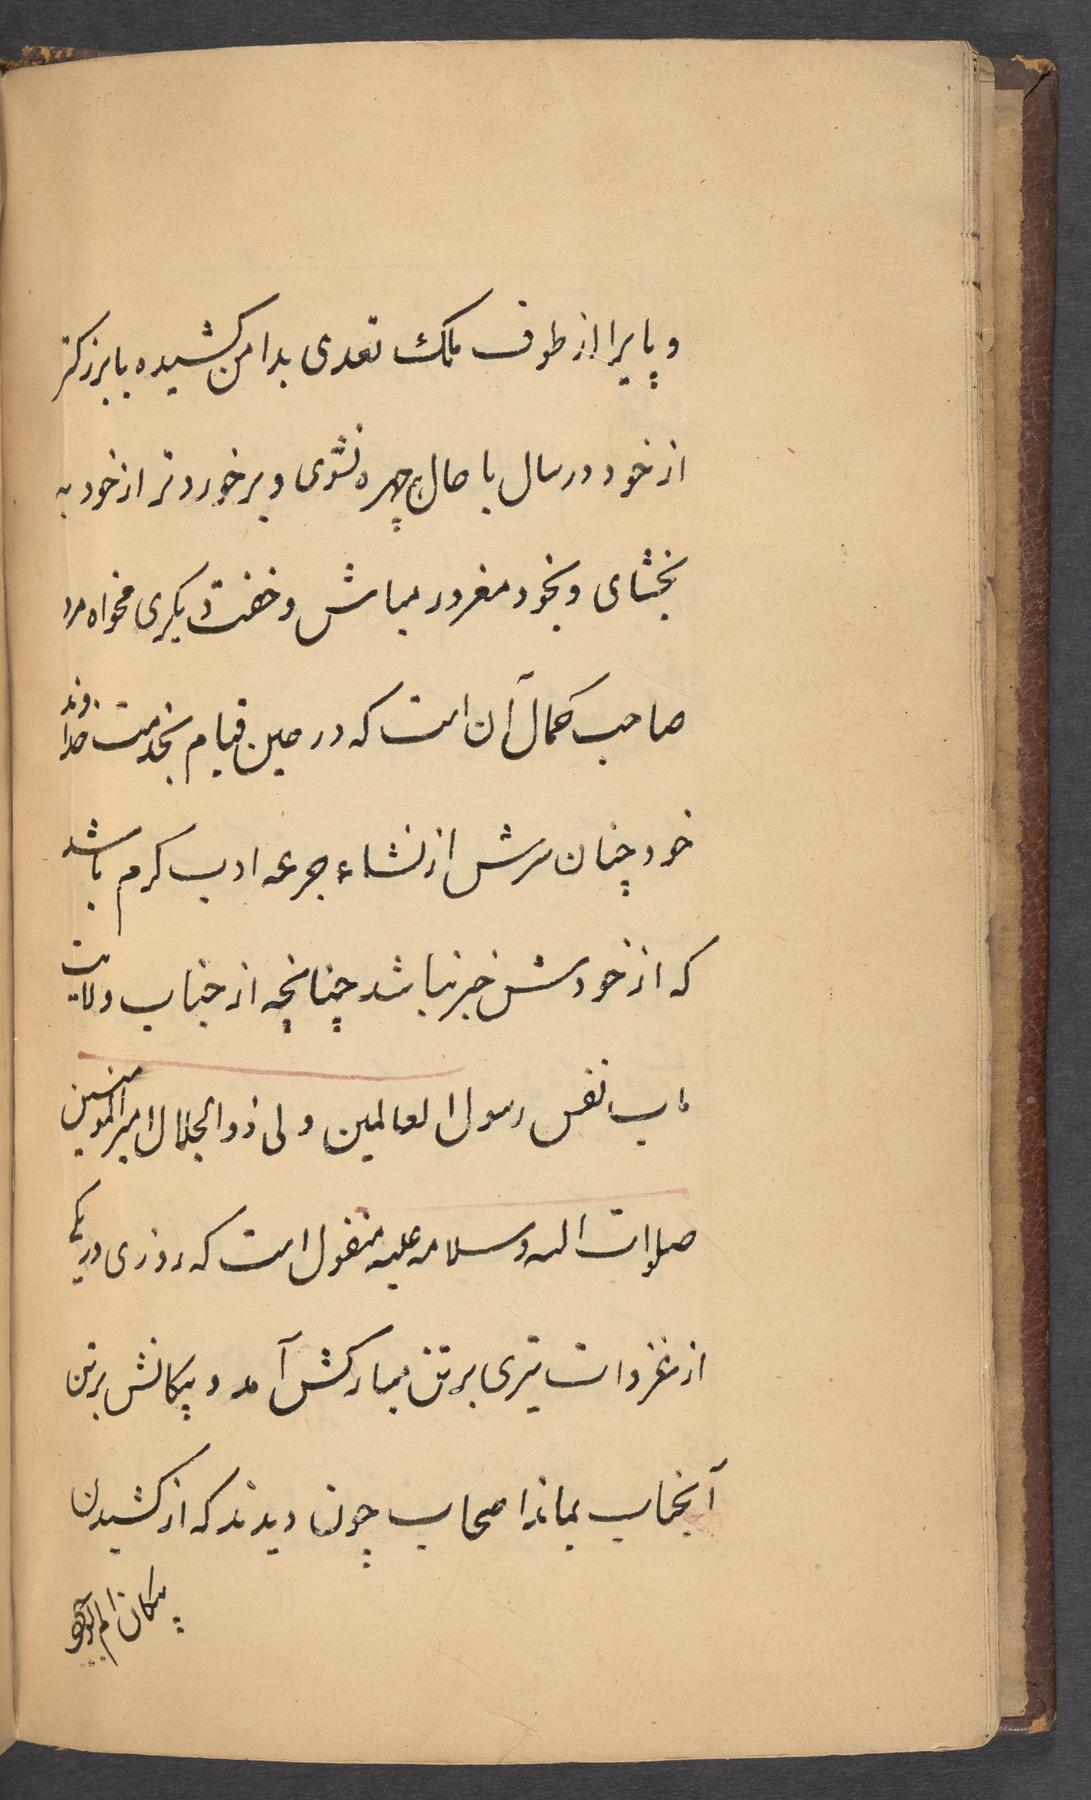 و پا را از طوف ملک تعدی بدامن کشیده با بزرکتر
از خود در سال با صالح چهره نشوی و بر خوردتر از خود به
بخشای و بخود مغرور مباش و خفت دیکری مخواه مرد
صاحب کمال آن است که در حین قیام بخدمت خداوند
خود چنان سرش از نشاء جرعه ادب کرم باشد
که از خودش خبر نباشد چنانچه از جناب ولایت
ماب نفس رسول العالمین ولی ذوالجلال امیر المومنین
صلوات الله وسلامه علیه منقول است که روزی در یکی
از غزوات تیری بر تن مبارکش آمد و پیکانش بر تن
آنجناب بماند اصحاب چون دیدند که از کشیدن
پیکان الم